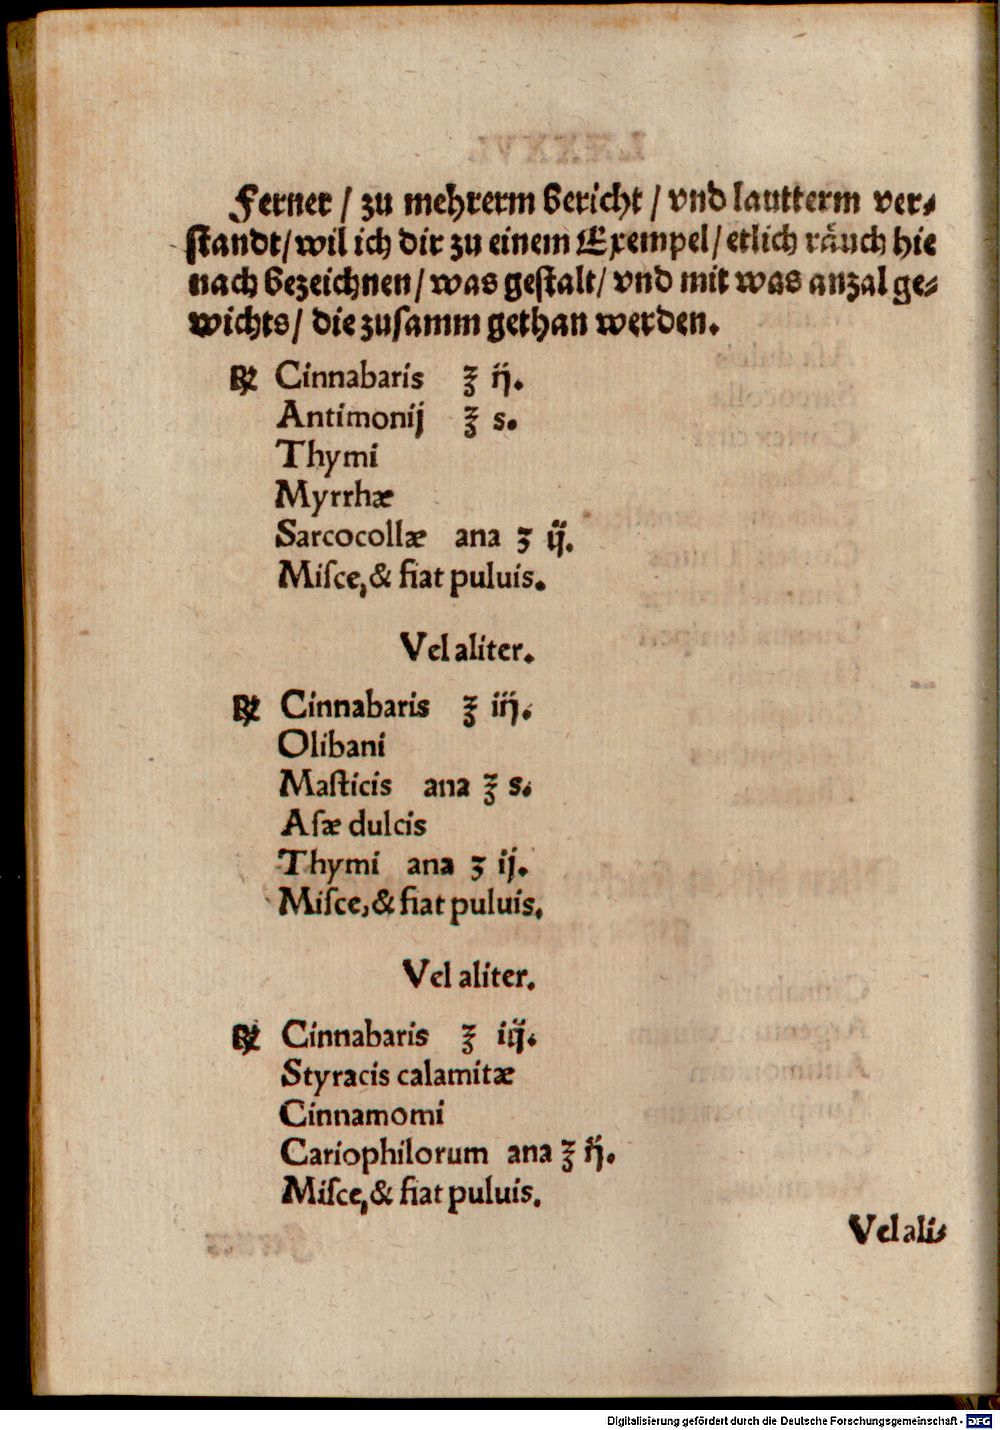 Ferner / zu mehrerm bericht / vnd lautterm ver⸗
standt/ wil ich dir zu einem Exempel/ etlich räuch hie
nach bezeichnen / was gestalt/ vnd mit was anzal ge⸗
wichts/ die zusamm gethan werden.
℞ Cinnabaris ℥ ij.
Antimonij ℥ s.
Thymi
Myrrhæ
Sarcocollæ ana ʒ ij.
Miſce, & fiat puluis.
Vel aliter.
℞ Cinnabaris ℥ iij.
Olibani
Maſticis ana ℥ s.
Aſæ dulcis
Thymi ana ʒ ij.
Miſce, & fiat puluis.
Vel aliter.
℞ Cinnabaris ℥ iij.
Styracis calamitæ
Cinnamomi
Cariophilorum ana ℥ ij.
Miſce, & fiat puluis.
Vel ali⸗
Digitalisierung gefördert durch die Deutsche Forschungsgemeinschaft - DFG